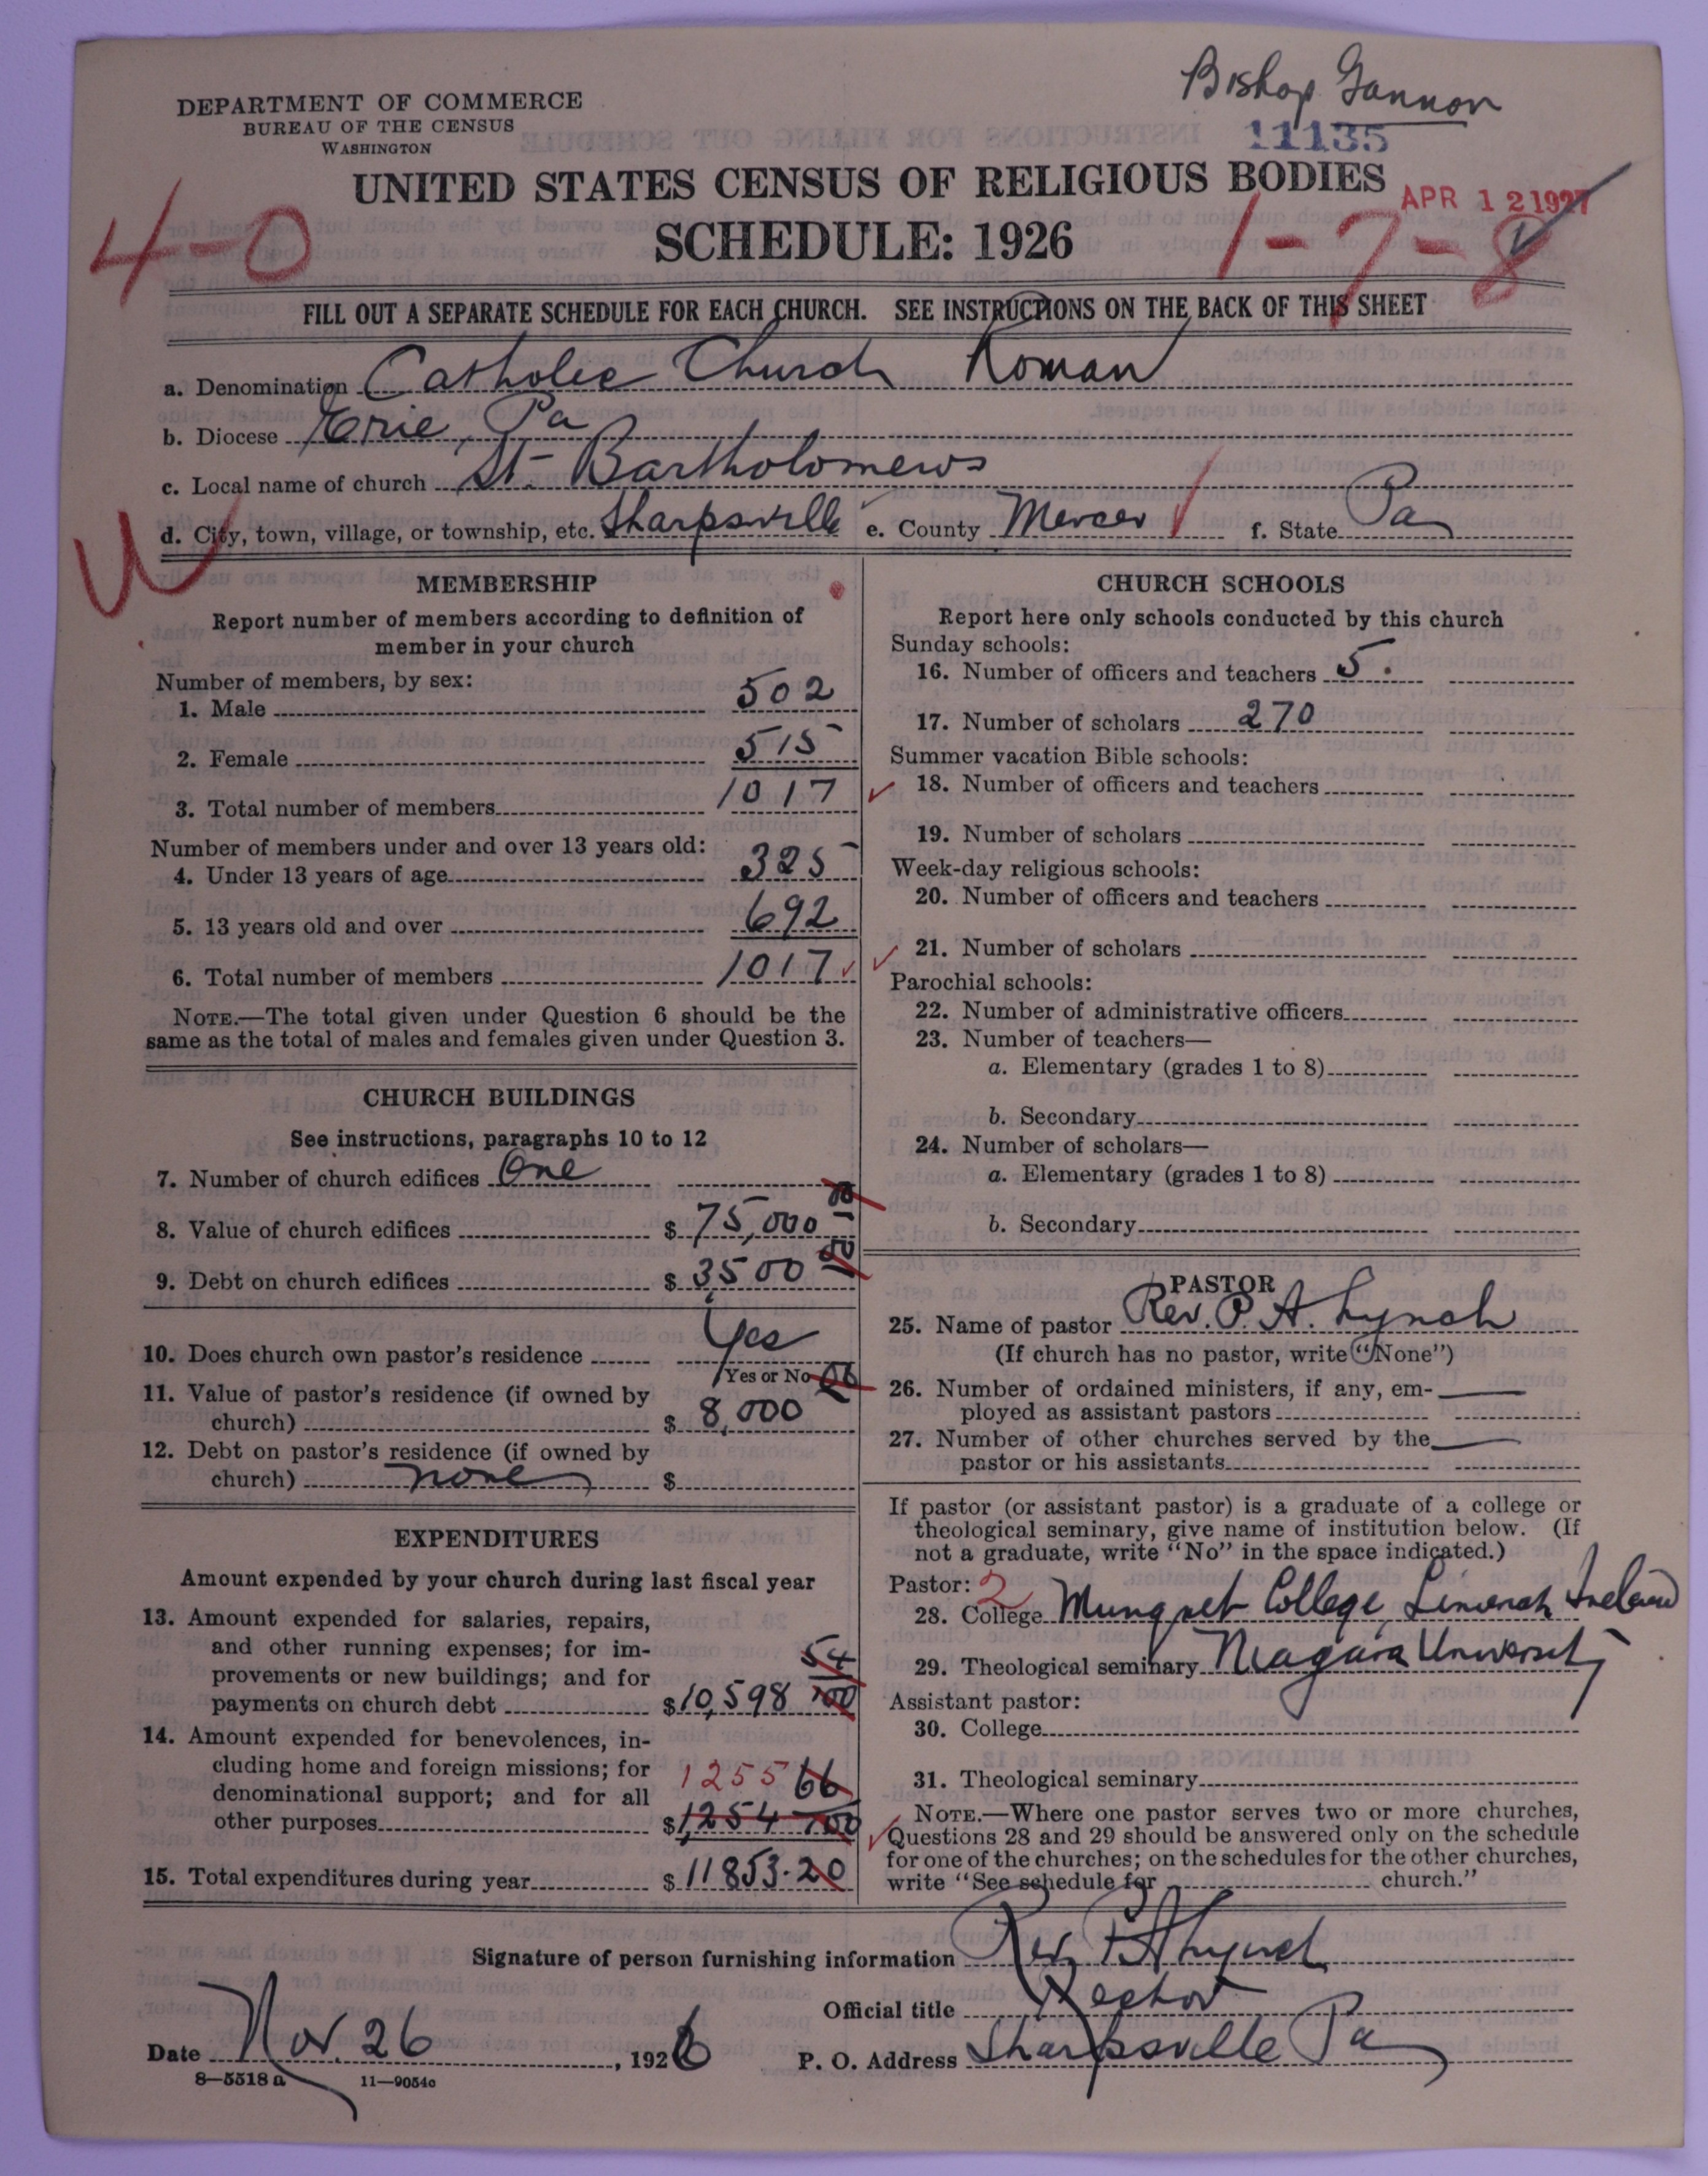 Bishop Gannon
DEPARTMENT OF COMMERCE
BUREAU OF THE CENSUS
WASHINGTON
11135
UNITED STATES CENSUS OF RELIGIOUS BODIES
APR 12 1927
SCHEDULE: 1926
4-0
1-7-8
FILL OUT A SEPARATE SCHEDULE FOR EACH CHURCH. SEE INSTRUCTIONS ON THE BACK OF THIS SHEET
a. Denomination Catholic Church Roman
b. Diocese Erie, Pa
c. Local name of church St. Bartholomews
d. City, town, village, or township, etc. Sharpsville e. County Mercer f. State Pa
MEMBERSHIP
Report number of members according to definition of
member in your church
Number of members, by sex:
1. Male 502
2. Female 515
3. Total number of members 1017
Number of members under and over 13 years old:
4. Under 13 years of age 325
5. 13 years old and over 692
6. Total number of members 1017
NOTE.—The total given under Question 6 should be the
same as the total of males and females given under Question 3.
CHURCH BUILDINGS
See instructions, paragraphs 10 to 12
7. Number of church edifices One
8. Value of church edifices $ 75,000 00
9. Debt on church edifices $ 3500 00
10. Does church own pastor's residence Yes
Yes or No
11. Value of pastor's residence (if owned by
church) $ 8,000 00
12. Debt on pastor's residence (if owned by
church) none $
EXPENDITURES
Amount expended by your church during last fiscal year
13. Amount expended for salaries, repairs,
and other running expenses; for im-
provements or new buildings; and for
payments on church debt $ 10,598 54/100
14. Amount expended for benevolences, in-
cluding home and foreign missions; for
denominational support; and for all 1255
other purposes $ 1,254 66/100
15. Total expenditures during year $ 11853.20
CHURCH SCHOOLS
Report here only schools conducted by this church
Sunday schools:
16. Number of officers and teachers 5.
17. Number of scholars 270
Summer vacation Bible schools:
18. Number of officers and teachers
19. Number of scholars
Week-day religious schools:
20. Number of officers and teachers
21. Number of scholars
Parochial schools:
22. Number of administrative officers
23. Number of teachers—
a. Elementary (grades 1 to 8)
b. Secondary
24. Number of scholars—
a. Elementary (grades 1 to 8)
b. Secondary
PASTOR
25. Name of pastor Rev. P. A. Lynch
(If church has no pastor, write "None")
26. Number of ordained ministers, if any, em-
ployed as assistant pastors
27. Number of other churches served by the
pastor or his assistants
If pastor (or assistant pastor) is a graduate of a college or
theological seminary, give name of institution below. (If
not a graduate, write "No" in the space indicated.)
Pastor: 2
28. College Mungret College, Limerick Ireland
29. Theological seminary Niagara University
Assistant pastor:
30. College
31. Theological seminary
NOTE.—Where one pastor serves two or more churches,
Questions 28 and 29 should be answered only on the schedule
for one of the churches; on the schedules for the other churches,
write "See schedule for church."
Signature of person furnishing information Rev. P. A. Lynch
Official title Rector
Date Nov. 26, 1926 P. O. Address Sharpsville Pa
8—5518 a 11—9054c